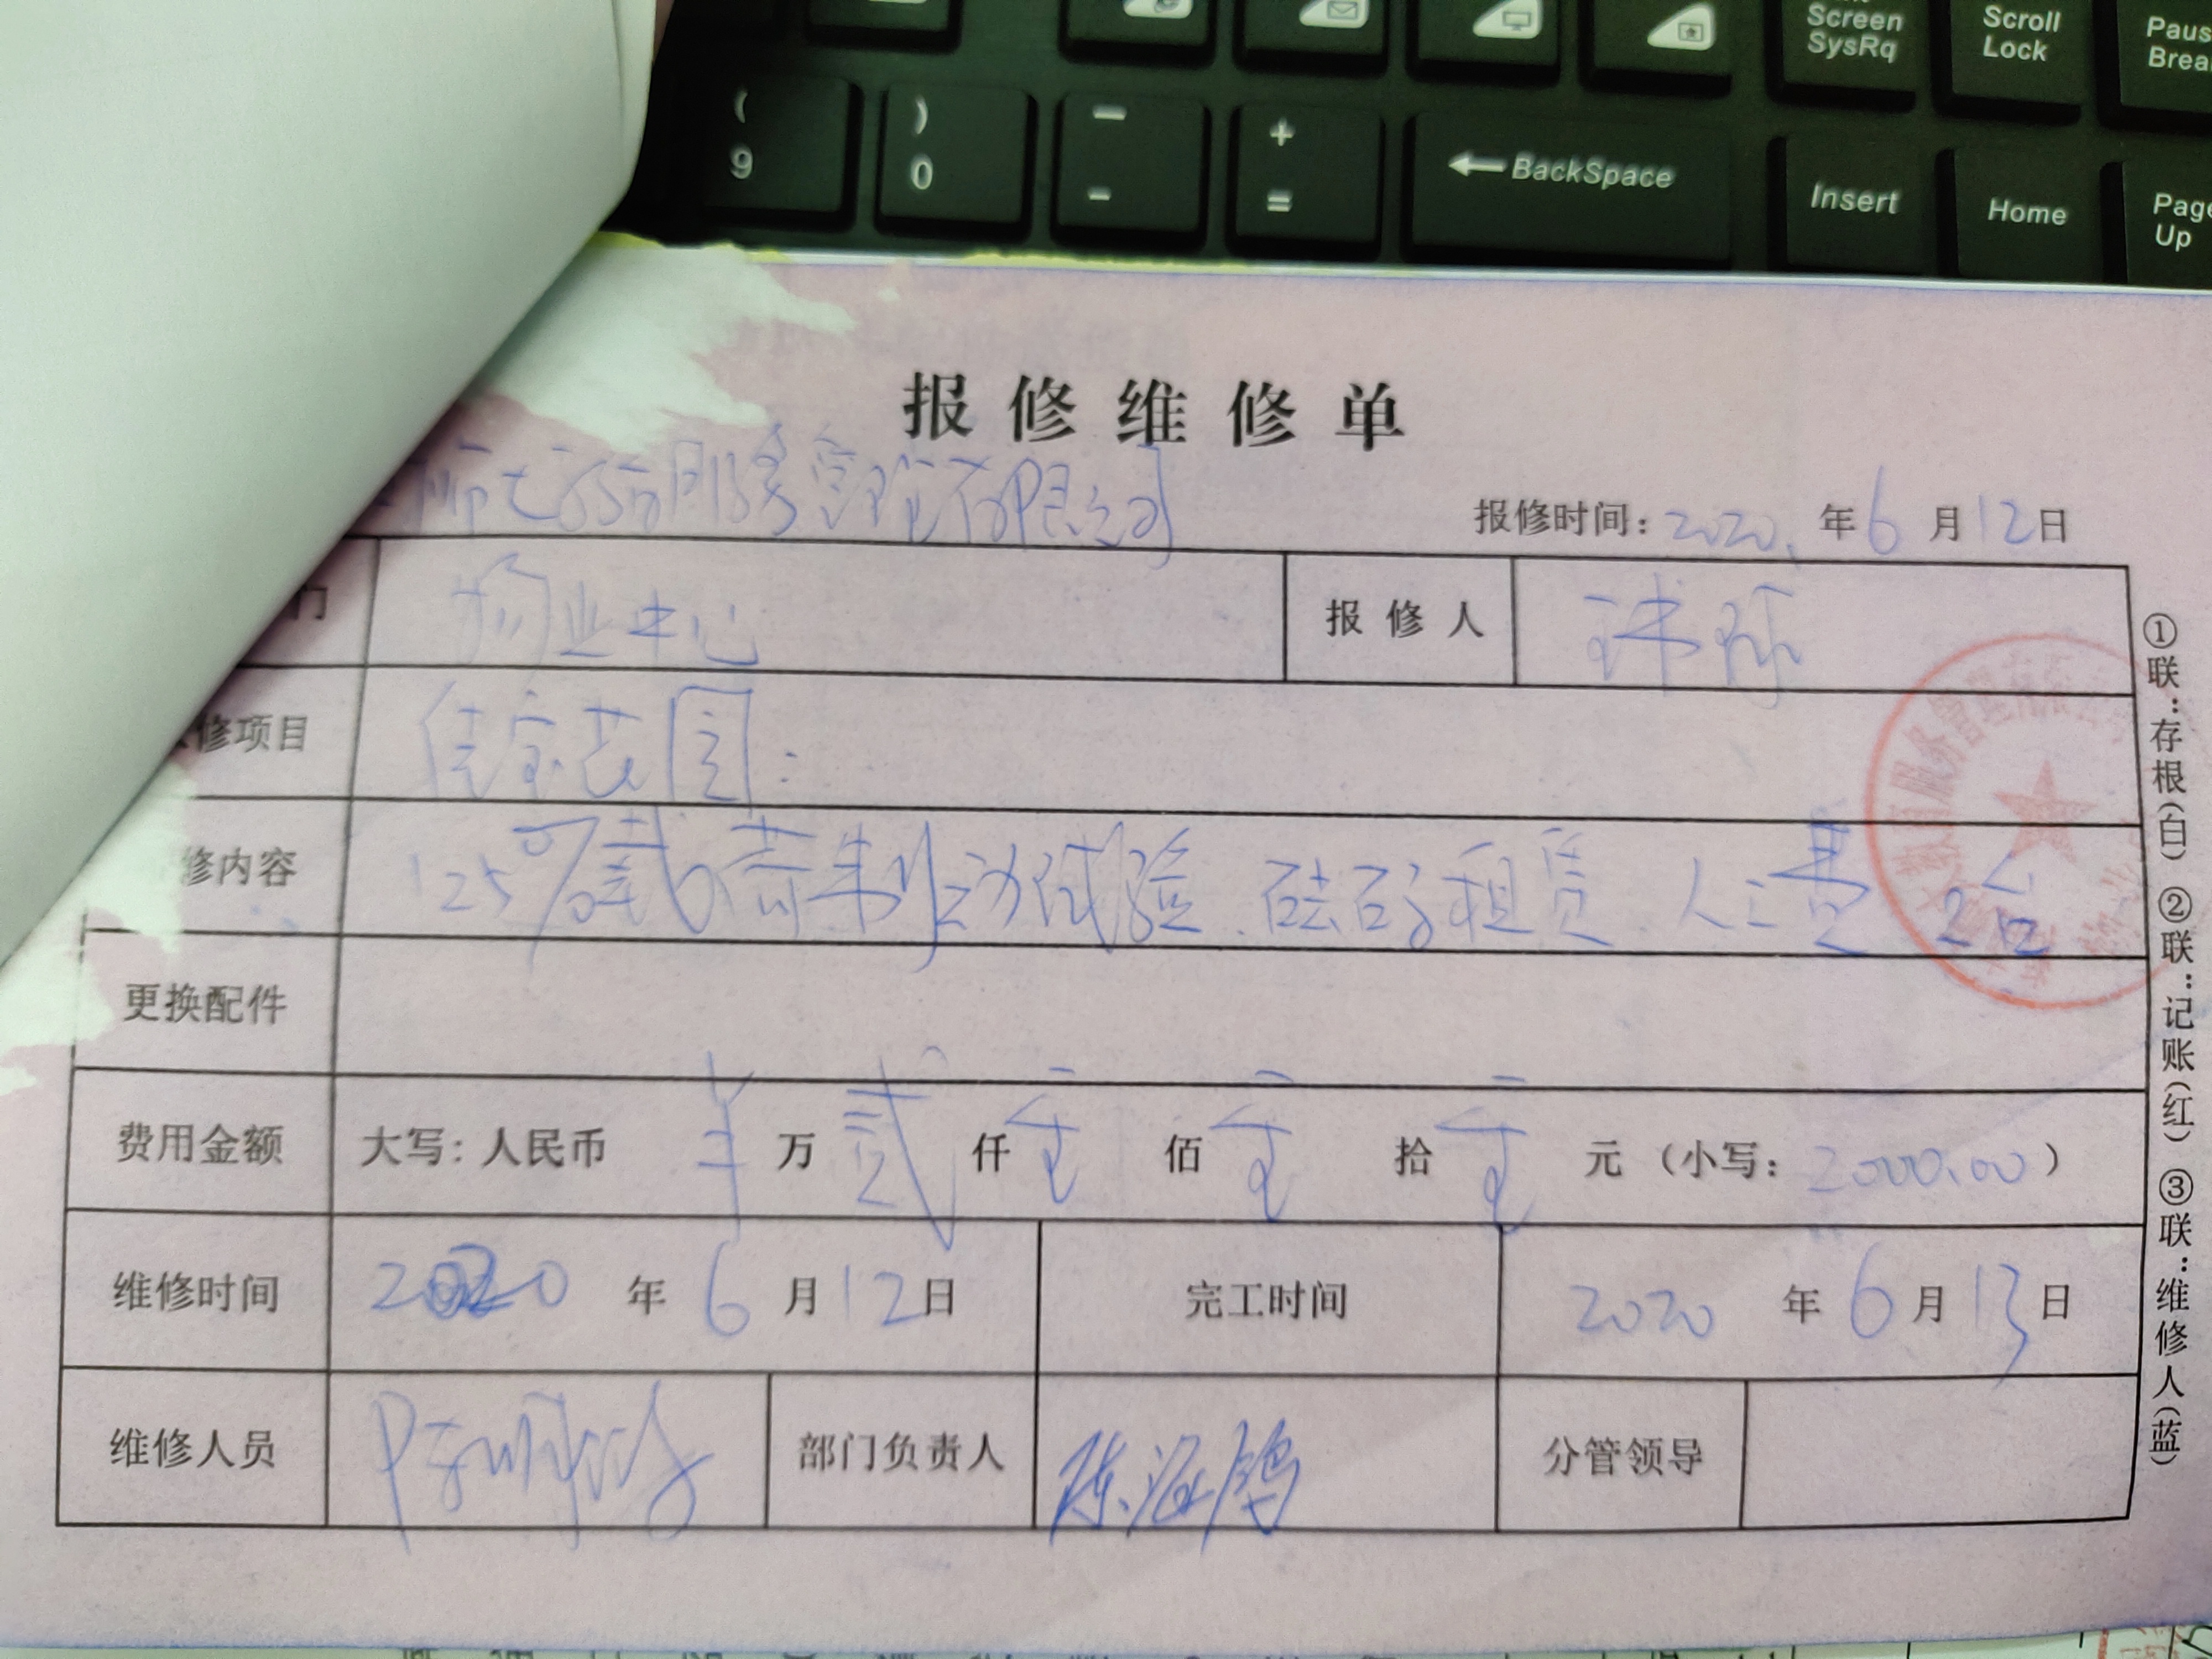 Screen
SysRq
Scroll
Lock
( 9
) 0
+ =
BackSpace
Insert
Home
Up
报修维修单
服务管理有限公司
报修时间: 2020. 年 6 月 12 日
物业中心
报修人
修项目
佳宝花园:
修内容
125%载荷制动试验.砝码租赁.人工费 2台
更换配件
费用金额
大写: 人民币 万 贰 仟 零 佰 零 拾 零 元 (小写: 2000.00)
维修时间
2020 年 6 月 12 日
完工时间
2020 年 6 月 13 日
维修人员
部门负责人
分管领导
①联:存根(白) ②联:记账(红) ③联:维修人(蓝)